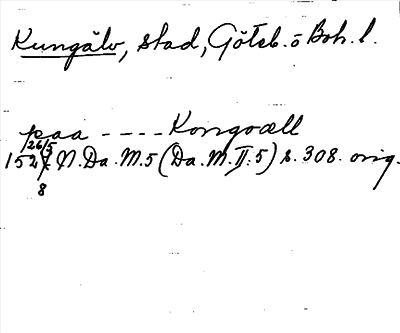 Kungälv, stad, Göteb. o Boh. l.
paa ---- Kongvæll
26/5
152 N. Da. M. 5 (Da. M. II: 5) s. 308. orig.
8